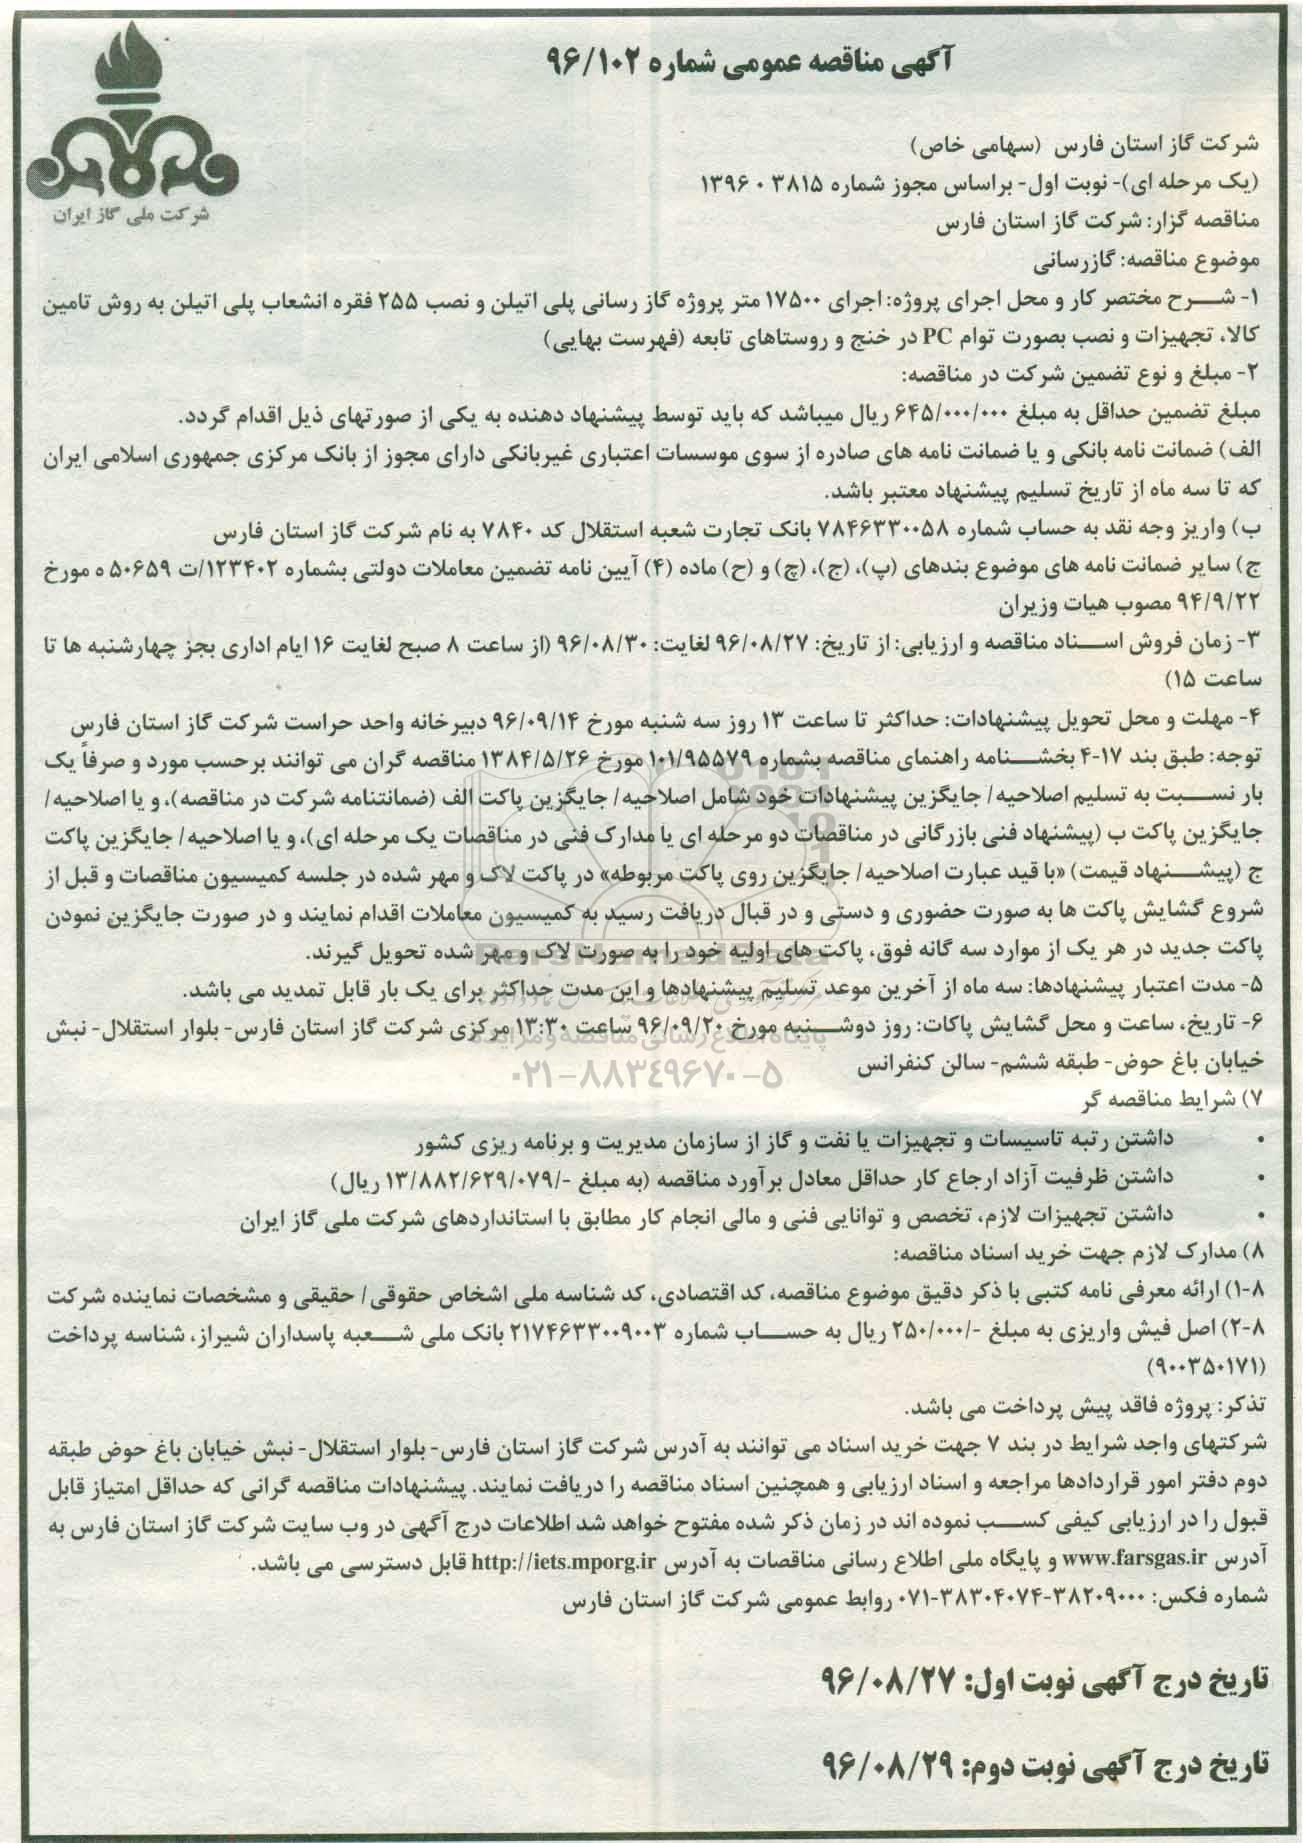 آگهی مناقصه عمومی شماره ۹۶/۱۰۲
شرکت ملی گاز ایران
شرکت گاز استان فارس (سهامی خاص)
(یک مرحله ای)- نوبت اول- براساس مجوز شماره ۳۸۱۵ ۰ ۱۳۹۶
مناقصه گزار: شرکت گاز استان فارس
موضوع مناقصه: گازرسانی
۱- شرح مختصر کار و محل اجرای پروژه: اجرای ۱۷۵۰۰ متر پروژه گاز رسانی پلی اتیلن و نصب ۲۵۵ فقره انشعاب پلی اتیلن به روش تامین
کالا، تجهیزات و نصب بصورت توام PC در خنج و روستاهای تابعه (فهرست بهایی)
۲- مبلغ و نوع تضمین شرکت در مناقصه:
مبلغ تضمین حداقل به مبلغ ۶۴۵/۰۰۰/۰۰۰ ریال میباشد که باید توسط پیشنهاد دهنده به یکی از صورتهای ذیل اقدام گردد.
الف) ضمانت نامه بانکی و یا ضمانت نامه های صادره از سوی موسسات اعتباری غیربانکی دارای مجوز از بانک مرکزی جمهوری اسلامی ایران
که تا سه ماه از تاریخ تسلیم پیشنهاد معتبر باشد.
ب) واریز وجه نقد به حساب شماره ۷۸۴۶۳۳۰۰۵۸ بانک تجارت شعبه استقلال کد ۷۸۴۰ به نام شرکت گاز استان فارس
ج) سایر ضمانت نامه های موضوع بندهای (پ)، (ج)، (چ) و (ح) ماده (۴) آیین نامه تضمین معاملات دولتی بشماره ۱۲۳۴۰۲/ت ۵۰۶۵۹ ه مورخ
۹۴/۹/۲۲ مصوب هیات وزیران
۳- زمان فروش اسناد مناقصه و ارزیابی: از تاریخ: ۹۶/۰۸/۲۷ لغایت: ۹۶/۰۸/۳۰ (از ساعت ۸ صبح لغایت ۱۶ ایام اداری بجز چهارشنبه ها تا
ساعت ۱۵)
۴- مهلت و محل تحویل پیشنهادات: حداکثر تا ساعت ۱۳ روز سه شنبه مورخ ۹۶/۰۹/۱۴ دبیرخانه واحد حراست شرکت گاز استان فارس
توجه: طبق بند ۱۷-۴ بخشنامه راهنمای مناقصه بشماره ۱۰۱/۹۵۵۷۹ مورخ ۱۳۸۴/۵/۲۶ مناقصه گران می توانند برحسب مورد و صرفاً یک
بار نسبت به تسلیم اصلاحیه/ جایگزین پیشنهادات خود شامل اصلاحیه/ جایگزین پاکت الف (ضمانتنامه شرکت در مناقصه)، و یا اصلاحیه/
جایگزین پاکت ب (پیشنهاد فنی بازرگانی در مناقصات دو مرحله ای یا مدارک فنی در مناقصات یک مرحله ای)، و یا اصلاحیه/ جایگزین پاکت
ج (پیشنهاد قیمت) «با قید عبارت اصلاحیه/ جایگزین روی پاکت مربوطه» در پاکت لاک و مهر شده در جلسه کمیسیون مناقصات و قبل از
شروع گشایش پاکت ها به صورت حضوری و دستی و در قبال دریافت رسید به کمیسیون معاملات اقدام نمایند و در صورت جایگزین نمودن
پاکت جدید در هر یک از موارد سه گانه فوق، پاکت های اولیه خود را به صورت لاک و مهر شده تحویل گیرند.
۵- مدت اعتبار پیشنهادها: سه ماه از آخرین موعد تسلیم پیشنهادها و این مدت حداکثر برای یک بار قابل تمدید می باشد.
۶- تاریخ، ساعت و محل گشایش پاکات: روز دوشنبه مورخ ۹۶/۰۹/۲۰ ساعت ۱۳:۳۰ مرکزی شرکت گاز استان فارس- بلوار استقلال- نبش
پایگاه اطلاع رسانی مناقصه و مزایده
خیابان باغ حوض- طبقه ششم- سالن کنفرانس
۰۲۱-۸۸۳۴۹۶۷۰-۵
۷) شرایط مناقصه گر
• داشتن رتبه تاسیسات و تجهیزات یا نفت و گاز از سازمان مدیریت و برنامه ریزی کشور
• داشتن ظرفیت آزاد ارجاع کار حداقل معادل برآورد مناقصه (به مبلغ -/۱۳/۸۸۲/۶۲۹/۰۷۹ ریال)
• داشتن تجهیزات لازم، تخصص و توانایی فنی و مالی انجام کار مطابق با استانداردهای شرکت ملی گاز ایران
۸) مدارک لازم جهت خرید اسناد مناقصه:
۸-۱) ارائه معرفی نامه کتبی با ذکر دقیق موضوع مناقصه، کد اقتصادی، کد شناسه ملی اشخاص حقوقی/ حقیقی و مشخصات نماینده شرکت
۸-۲) اصل فیش واریزی به مبلغ -/۲۵۰/۰۰۰ ریال به حساب شماره ۲۱۷۴۶۳۳۰۰۹۰۰۳ بانک ملی شعبه پاسداران شیراز، شناسه پرداخت
(۹۰۰۳۵۰۱۷۱)
تذکر: پروژه فاقد پیش پرداخت می باشد.
شرکتهای واجد شرایط در بند ۷ جهت خرید اسناد می توانند به آدرس شرکت گاز استان فارس- بلوار استقلال- نبش خیابان باغ حوض طبقه
دوم دفتر امور قراردادها مراجعه و اسناد ارزیابی و همچنین اسناد مناقصه را دریافت نمایند. پیشنهادات مناقصه گرانی که حداقل امتیاز قابل
قبول را در ارزیابی کیفی کسب نموده اند در زمان ذکر شده مفتوح خواهد شد اطلاعات درج آگهی در وب سایت شرکت گاز استان فارس به
آدرس www.farsgas.ir و پایگاه ملی اطلاع رسانی مناقصات به آدرس http://iets.mporg.ir قابل دسترسی می باشد.
شماره فکس: ۳۸۲۰۹۰۰۰-۳۸۳۰۴۰۷۴-۰۷۱ روابط عمومی شرکت گاز استان فارس
تاریخ درج آگهی نوبت اول: ۹۶/۰۸/۲۷
تاریخ درج آگهی نوبت دوم: ۹۶/۰۸/۲۹